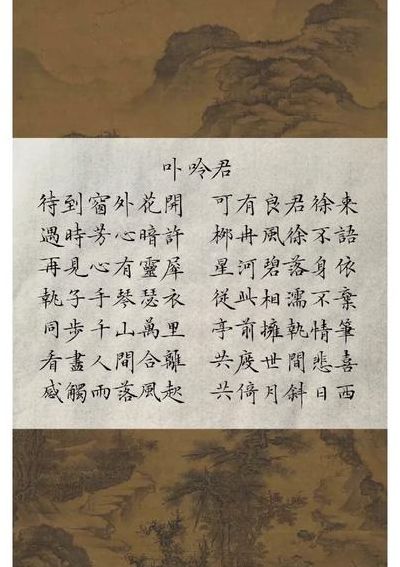 卟吟君
待到窗外花開 可有良君徐來
遇時芳心暗許 柳冉風徐不語
再見心有靈犀 星河碧落身依
執子手琴瑟衣 從此相濡不棄
同步千山萬里 亭前擁執情筆
看盡人間合離 共度世間悲喜
感觸雨落風起 共倚月斜日西